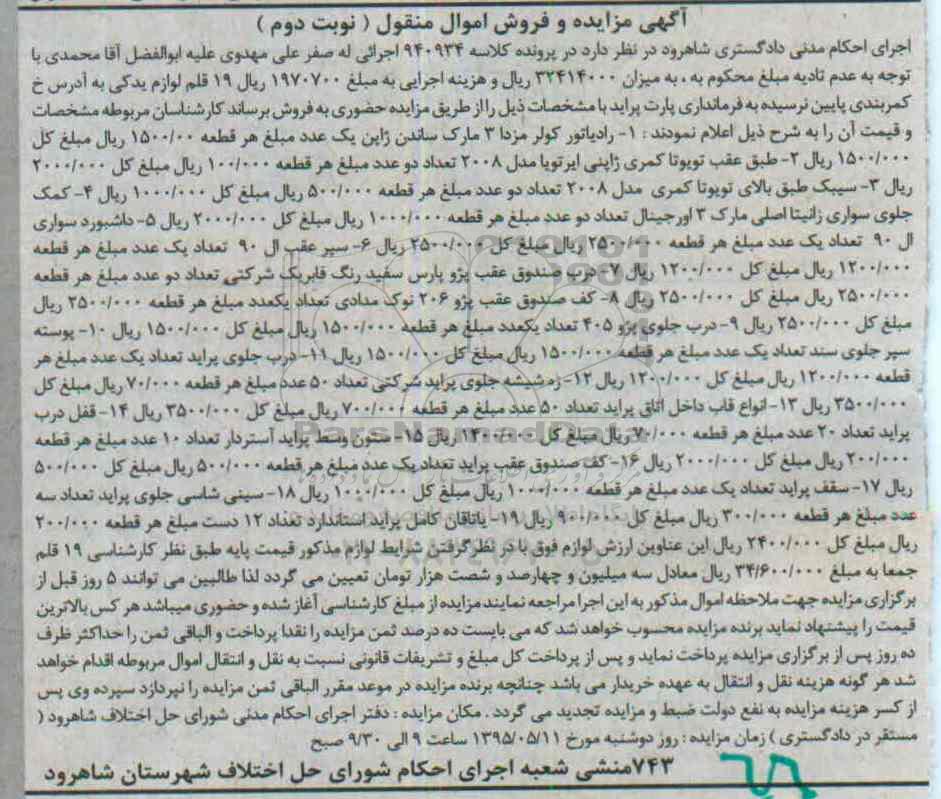 آگهی مزایده و فروش اموال منقول ( نوبت دوم )
اجرای احکام مدنی دادگستری شاهرود در نظر دارد در پرونده کلاسه ۹۴۰۹۳۴ اجرائی له صفر علی مهدوی علیه ابوالفضل آقا محمدی با
توجه به عدم تادیه مبلغ محکوم به ، به میزان ۳۲۴۱۴۰۰۰ ریال و هزینه اجرایی به مبلغ ۱۹۷۰۷۰۰ ریال ۱۹ قلم لوازم یدکی به آدرس خ
کمربندی پایین نرسیده به فرمانداری پارت پراید با مشخصات ذیل را از طریق مزایده حضوری به فروش برساند کارشناسان مربوطه مشخصات
و قیمت آن را به شرح ذیل اعلام نمودند : ۱- رادیاتور کولر مزدا ۳ مارک ساندن ژاپن یک عدد مبلغ هر قطعه ۱۵۰۰/۰۰ ریال مبلغ کل
۱۵۰۰/۰۰۰ ریال ۲- طبق عقب تویوتا کمری ژاپنی ایرتویا مدل ۲۰۰۸ تعداد دو عدد مبلغ هر قطعه ۱۰۰/۰۰۰ ریال مبلغ کل ۲۰۰۰/۰۰۰
ریال ۳- سیبک طبق بالای تویوتا کمری مدل ۲۰۰۸ تعداد دو عدد مبلغ هر قطعه ۵۰۰/۰۰۰ ریال مبلغ کل ۱۰۰۰/۰۰۰ ریال ۴- کمک
جلوی سواری زانیتا اصلی مارک ۳ اورجینال تعداد دو عدد مبلغ هر قطعه ۱۰۰۰/۰۰۰ ریال مبلغ کل ۲۰۰۰/۰۰۰ ریال ۵- داشبورد سواری
ال ۹۰ تعداد یک عدد مبلغ هر قطعه ۲۵۰۰/۰۰۰ ریال مبلغ کل ۲۵۰۰/۰۰۰ ریال ۶- سپر عقب ال ۹۰ تعداد یک عدد مبلغ هر قطعه
۱۲۰۰/۰۰۰ ریال مبلغ کل ۱۲۰۰/۰۰۰ ریال ۷- درب صندوق عقب پژو پارس سفید رنگ فابریک شرکتی تعداد دو عدد مبلغ هر قطعه
۲۵۰۰/۰۰۰ ریال مبلغ کل ۲۵۰۰/۰۰۰ ریال ۸- کف صندوق عقب پژو ۲۰۶ نوک مدادی تعداد یکعدد مبلغ هر قطعه ۲۵۰۰/۰۰۰ ریال
مبلغ کل ۲۵۰۰/۰۰۰ ریال ۹- درب جلوی پژو ۴۰۵ تعداد یکعدد مبلغ هر قطعه ۱۵۰۰/۰۰۰ ریال مبلغ کل ۱۵۰۰/۰۰۰ ریال ۱۰- پوسته
سپر جلوی سند تعداد یک عدد مبلغ هر قطعه ۱۵۰۰/۰۰۰ ریال مبلغ کل ۱۵۰۰/۰۰۰ ریال ۱۱- درب جلوی پراید تعداد یک عدد مبلغ هر
قطعه ۱۲۰۰/۰۰۰ ریال مبلغ کل ۱۲۰۰/۰۰۰ ریال ۱۲- زه شیشه جلوی پراید شرکتی تعداد ۵۰ عدد مبلغ هر قطعه ۷۰/۰۰۰ ریال مبلغ کل
۳۵۰۰/۰۰۰ ریال ۱۳- انواع قاب داخل اتاق پراید تعداد ۵۰ عدد مبلغ هر قطعه ۷۰۰/۰۰۰ ریال مبلغ کل ۳۵۰۰/۰۰۰ ریال ۱۴- قفل درب
پراید تعداد ۲۰ عدد مبلغ هر قطعه ۷۰/۰۰۰ ریال مبلغ کل ۱۴۰۰/۰۰۰ ریال ۱۵- ستون وسط پراید آستردار تعداد ۱۰ عدد مبلغ هر قطعه
۲۰۰/۰۰۰ ریال مبلغ کل ۲۰۰۰/۰۰۰ ریال ۱۶- کف صندوق عقب پراید تعداد یک عدد مبلغ هر قطعه ۵۰۰/۰۰۰ ریال مبلغ کل ۵۰۰/۰۰۰
ریال ۱۷- سقف پراید تعداد یک عدد مبلغ هر قطعه ۱۰۰۰/۰۰۰ ریال مبلغ کل ۱۰۰۰/۰۰۰ ریال ۱۸- سینی شاسی جلوی پراید تعداد سه
عدد مبلغ هر قطعه ۳۰۰/۰۰۰ ریال مبلغ کل ۹۰۰/۰۰۰ ریال ۱۹- یاتاقان کامل پراید استاندارد تعداد ۱۲ دست مبلغ هر قطعه ۲۰۰/۰۰۰
ریال مبلغ کل ۲۴۰۰/۰۰۰ ریال این عناوین ارزش لوازم فوق با در نظر گرفتن شرایط لوازم مذکور قیمت پایه طبق نظر کارشناسی ۱۹ قلم
جمعا به مبلغ ۳۴/۶۰۰/۰۰۰ ریال معادل سه میلیون و چهارصد و شصت هزار تومان تعیین می گردد لذا طالبین می توانند ۵ روز قبل از
برگزاری مزایده جهت ملاحظه اموال مذکور به این اجرا مراجعه نمایند مزایده از مبلغ کارشناسی آغاز شده و حضوری میباشد هر کس بالاترین
قیمت را پیشنهاد نماید برنده مزایده محسوب خواهد شد که می بایست ده درصد ثمن مزایده را نقدا پرداخت و الباقی ثمن را حداکثر ظرف
ده روز پس از برگزاری مزایده پرداخت نماید و پس از پرداخت کل مبلغ و تشریفات قانونی نسبت به نقل و انتقال اموال مربوطه اقدام خواهد
شد هر گونه هزینه نقل و انتقال به عهده خریدار می باشد چنانچه برنده مزایده در موعد مقرر الباقی ثمن مزایده را نپردازد سپرده وی پس
از کسر هزینه مزایده به نفع دولت ضبط و مزایده تجدید می گردد . مکان مزایده : دفتر اجرای احکام مدنی شورای حل اختلاف شاهرود (
مستقر در دادگستری ) زمان مزایده : روز دوشنبه مورخ ۱۳۹۵/۰۵/۱۱ ساعت ۹ الی ۹/۳۰ صبح
۷۴۳منشی شعبه اجرای احکام شورای حل اختلاف شهرستان شاهرود
ParsNamadData